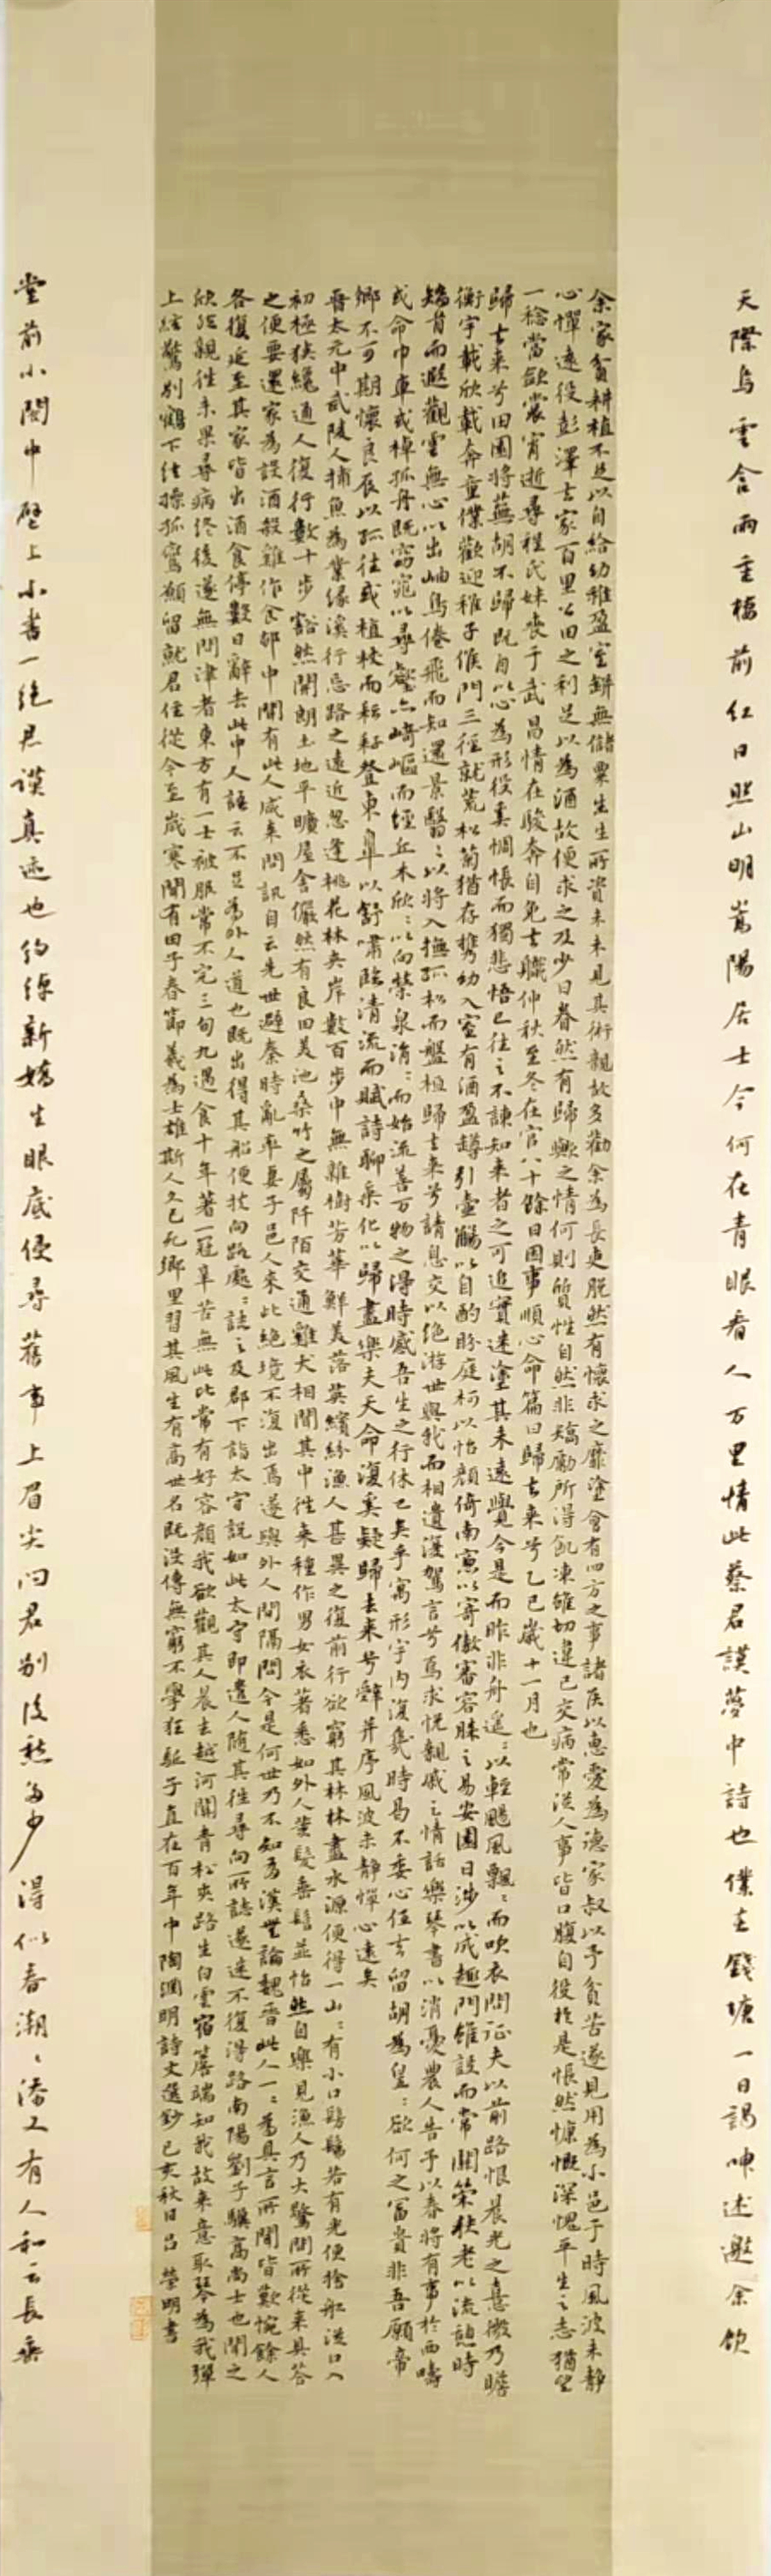 天際烏雲含雨重樓前紅日照山明嵩陽居士今何在青眼看人万里情此蔡君謨夢中詩也僕在錢塘一日謁陳述邀余飲
余家貧耕植不足以自給幼稚盈室缾無儲粟生生所資未見其術親故多勸余為長吏脫然有懷求之靡塗會有四方之事諸侯以惠愛為德家叔以予貧苦遂見用為小邑于時風波未靜
心憚遠役彭澤去家百里公田之利足以為酒故便求之及少日眷然有歸歟之情何則質性自然非矯勵所得飢凍雖切違己交病常從人事皆口腹自役於是悵然慷慨深愧平生之志猶望
一稔當歛裳宵逝尋程氏妹喪于武昌情在駿奔自免去職仲秋至冬在官八十餘日因事順心命篇曰歸去來兮乙巳歲十一月也
歸去來兮田園將蕪胡不歸既自以心為形役奚惆悵而獨悲悟已往之不諫知來者之可追實迷塗其未遠覺今是而昨非舟遙〻以輕颺風飄〻而吹衣問征夫以前路恨晨光之憙微乃瞻
衡宇載欣載奔童僕歡迎稚子候門三徑就荒松菊猶存携幼入室有酒盈罇引壺觴以自酌眄庭柯以怡顏倚南窻以寄傲審容膝之易安園日涉以成趣門雖設而常關策扶老以流憩時
矯首而遐觀雲無心以出岫鳥倦飛而知還景翳〻以將入撫孤松而盤桓歸去來兮請息交以絕游世與我而相遺復駕言兮焉求悅親戚之情話樂琴書以消憂農人告予以春將有事於西疇
或命巾車或棹孤舟既窈窕以尋壑亦崎嶇而經丘木欣〻以向榮泉涓〻而始流善万物之得時感吾生之行休已矣乎寓形宇內復幾時曷不委心任去留胡為皇〻欲何之富貴非吾願帝
鄉不可期懷良辰以孤往或植杖而耘耔登東皐以舒嘯臨清流而賦詩聊乘化以歸盡樂夫天命復奚疑歸去來兮辭并序風波未靜憚心遠矣
晉太元中武陵人捕魚為業緣溪行忘路之遠近忽逢桃花林夾岸數百步中無雜樹芳華鮮美落英繽紛漁人甚異之復前行欲窮其林林盡水源便得一山〻有小口髣髴若有光便捨船從口入
初極狹纔通人復行數十步豁然開朗土地平曠屋舍儼然有良田美池桑竹之屬阡陌交通雞犬相聞其中往來種作男女衣著悉如外人黃髮垂髫並怡然自樂見漁人乃大驚問所從來具答
之便要還家為設酒殺雞作食邨中聞有此人咸來問訊自云先世避秦時亂率妻子邑人來此絕境不復出焉遂與外人間隔問今是何世乃不知有漢無論魏晉此人一〻為具言所聞皆歎惋餘人
各復延至其家皆出酒食停數日辭去此中人語云不足為外人道也既出得其船便扶向路處〻誌之及郡下詣太守說如此太守即遣人隨其往尋向所誌遂迷不復得路南陽劉子驥高尚士也聞之
欣然親往未果尋病終後遂無問津者東方有一士被服常不完三旬九遇食十年著一冠辛苦無此比常有好容顏我欲觀其人晨去越河關青松夾路生白雲宿簷端知我故來意取琴為我彈
上絃驚別鶴下絃操孤鸞願留就君住從今至歲寒聞有田子春節義為士雄斯人久已死鄉里習其風生有高世名既沒傳無窮不學狂馳子直在百年中陶淵明詩文選鈔己亥秋日呂榮明書
堂前小閣中壁上小書一絕君謨真迹也約綽新嬌生眼底侵尋舊事上眉尖問君別後愁多少得似春潮〻潘又有人和云長垂